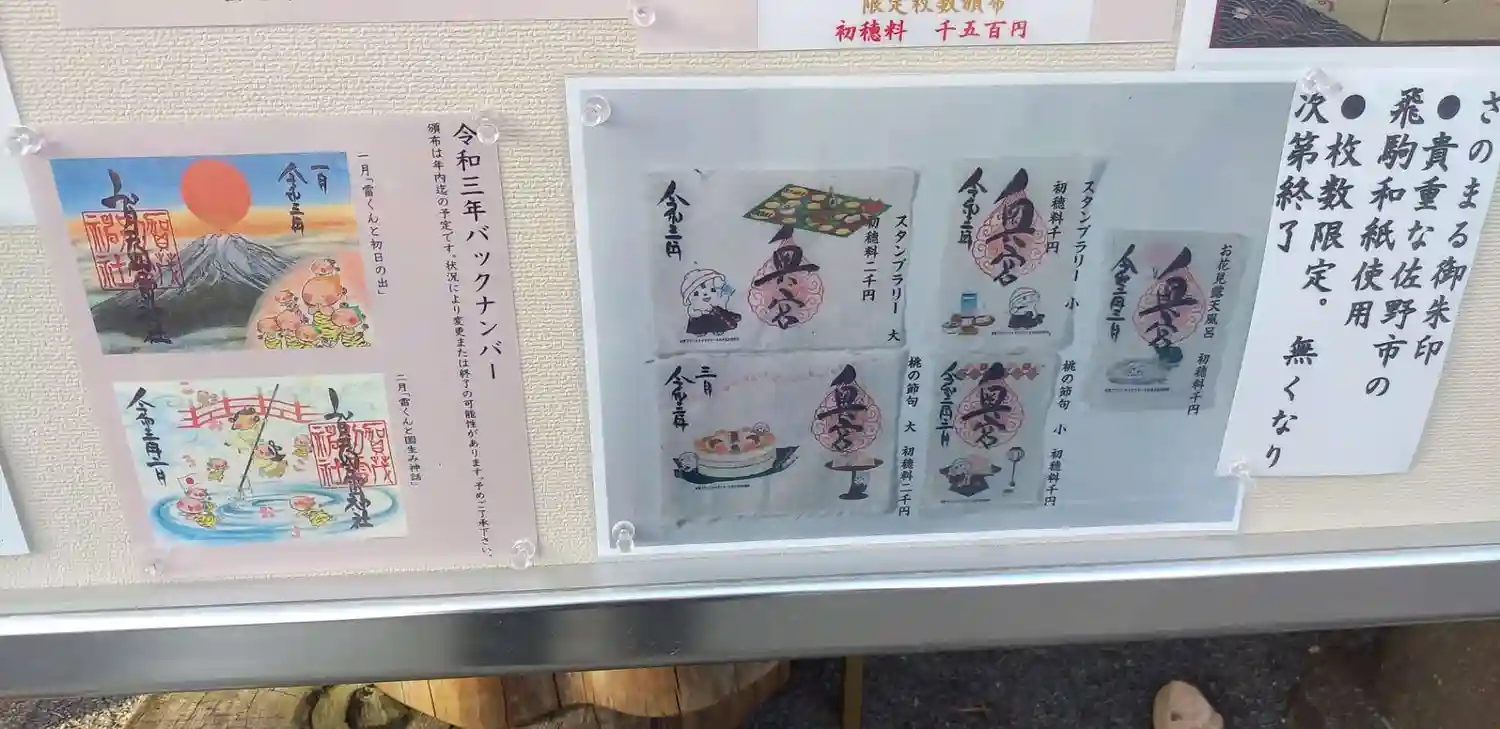 限定枚数頒布
初穂料 千五百円
令和三年バックナンバー
頒布は年内迄の予定です。状況により変更または終了の可能性があります。予めご了承下さい。
一月「雷くんと初日の出」
一月
令和三年
賀茂
別雷神社
二月「雷くんと国生み神話」
令和三年二月
賀茂
別雷神社
スタンプラリー 大
初穂料二千円
奥宮
スタンプラリー 小
初穂料千円
奥宮
お花見露天風呂 初穂料千円
奥宮
令和三年三月
桃の節句 大 初穂料二千円
奥宮
三月
令和三年
桃の節句 小 初穂料千円
奥宮
令和三年三月
さのまる御朱印
●貴重な佐野市の
飛駒和紙使用
●枚数限定。無くなり
次第終了